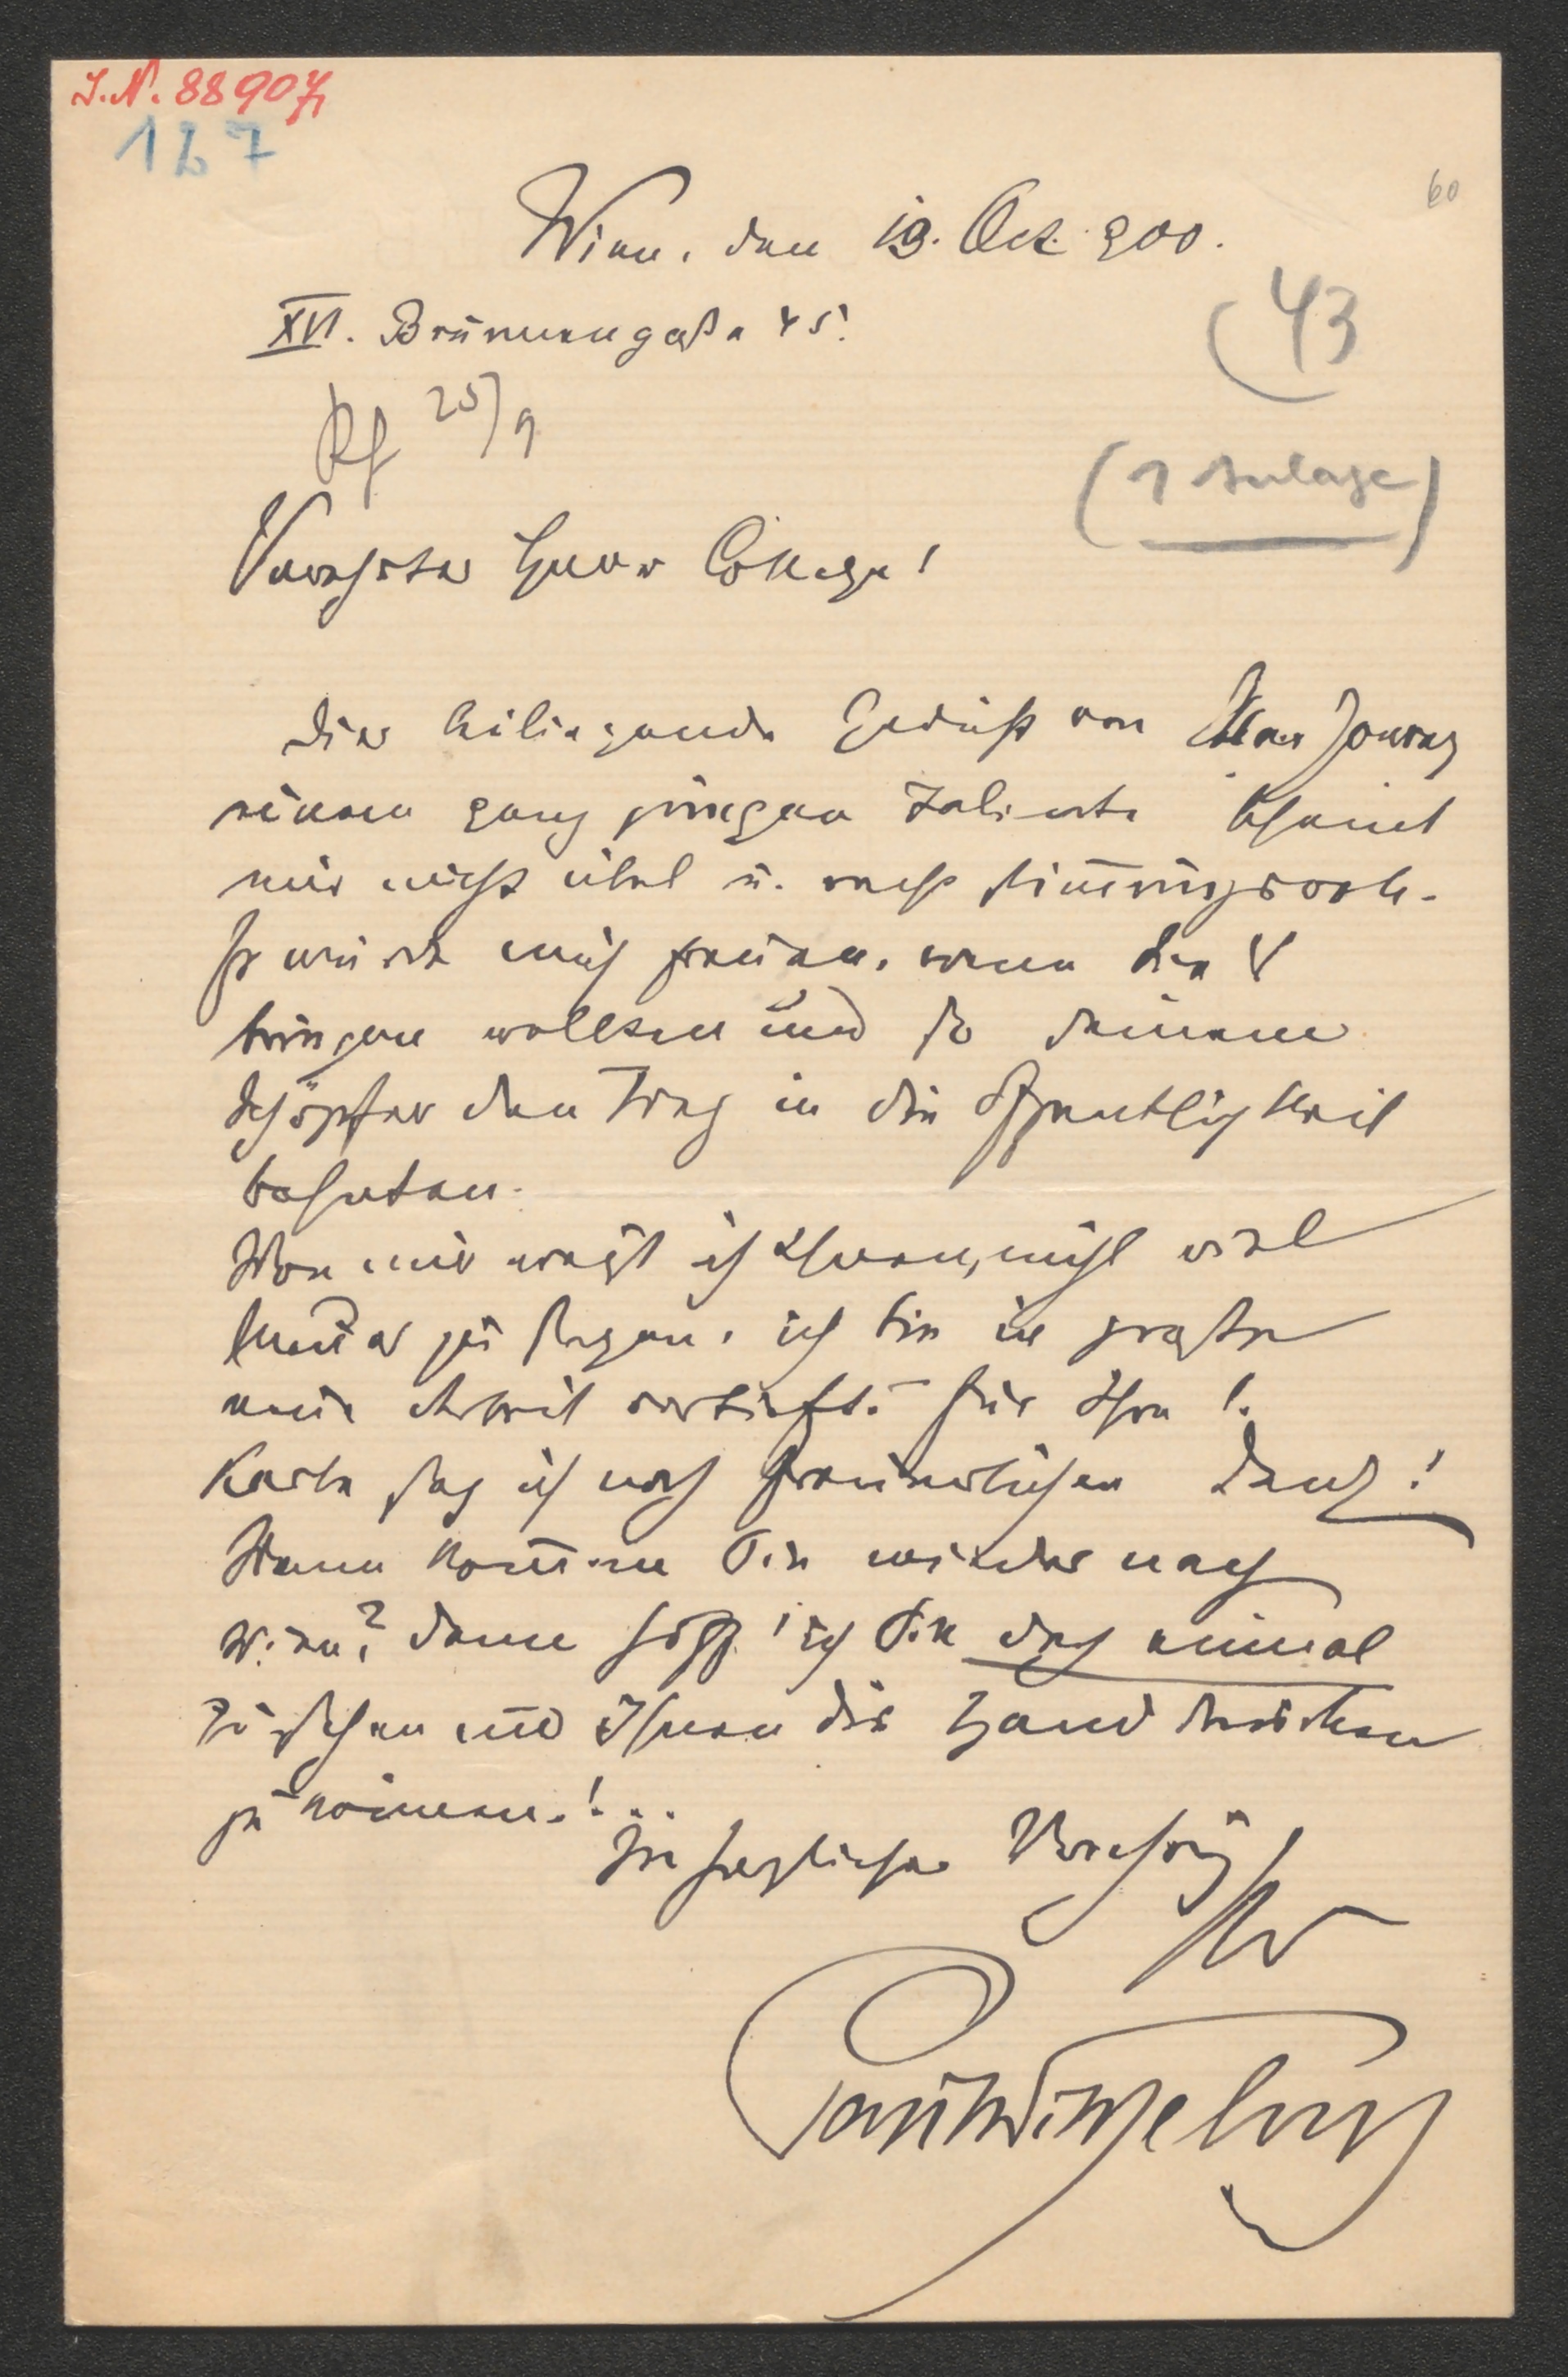 J.N. 88907
127
60
Wien, den 19. Oct. 900.
XVI. Brunnengasse 45.
43
Rf 25/9
(1 Anlage)
Verehrter Herr College!
Das beiliegende Gedicht von
einem ganz jungen Talente scheint
mir nicht übel u. recht stimungsvoll.
Es würde mich freuen, wenn Sie
bringen wollten und so seinem
Schöpfer den Weg in die Öffentlichkeit
bahnten.
Von mir weiß ich Ihnen, nicht viel
zu sagen, ich bin in große
neue Arbeit vertieft. Für Ihre l.
Karte sag ich noch freundlichen Dank!
Wann komen Sie wieder nach
Wien? Dann hoff' ich Sie doch einmal
zu sehen und Ihnen die Hand drücken
zu können!...
In herzlicher Verehrung
Ihr
Paul Wilhelm